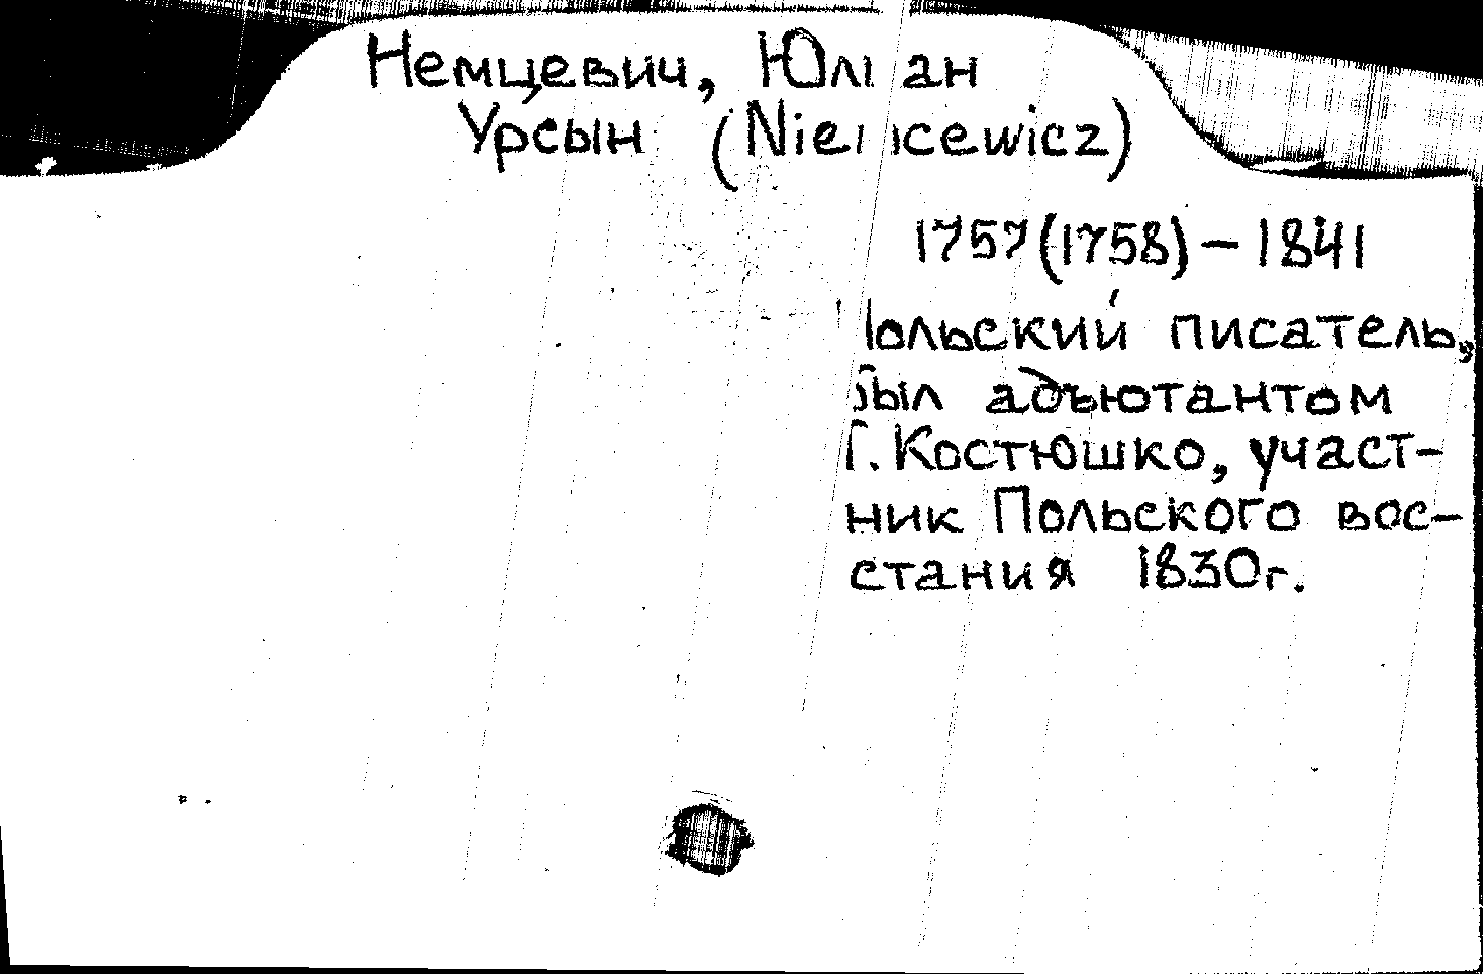 Немцевич, Юлиан
Урсын (Niemcewicz)
1757(1758) – 1841
Польский писатель,
был адъютантом
Т. Костюшко, участ-
ник Польского вос-
стания 1830г.